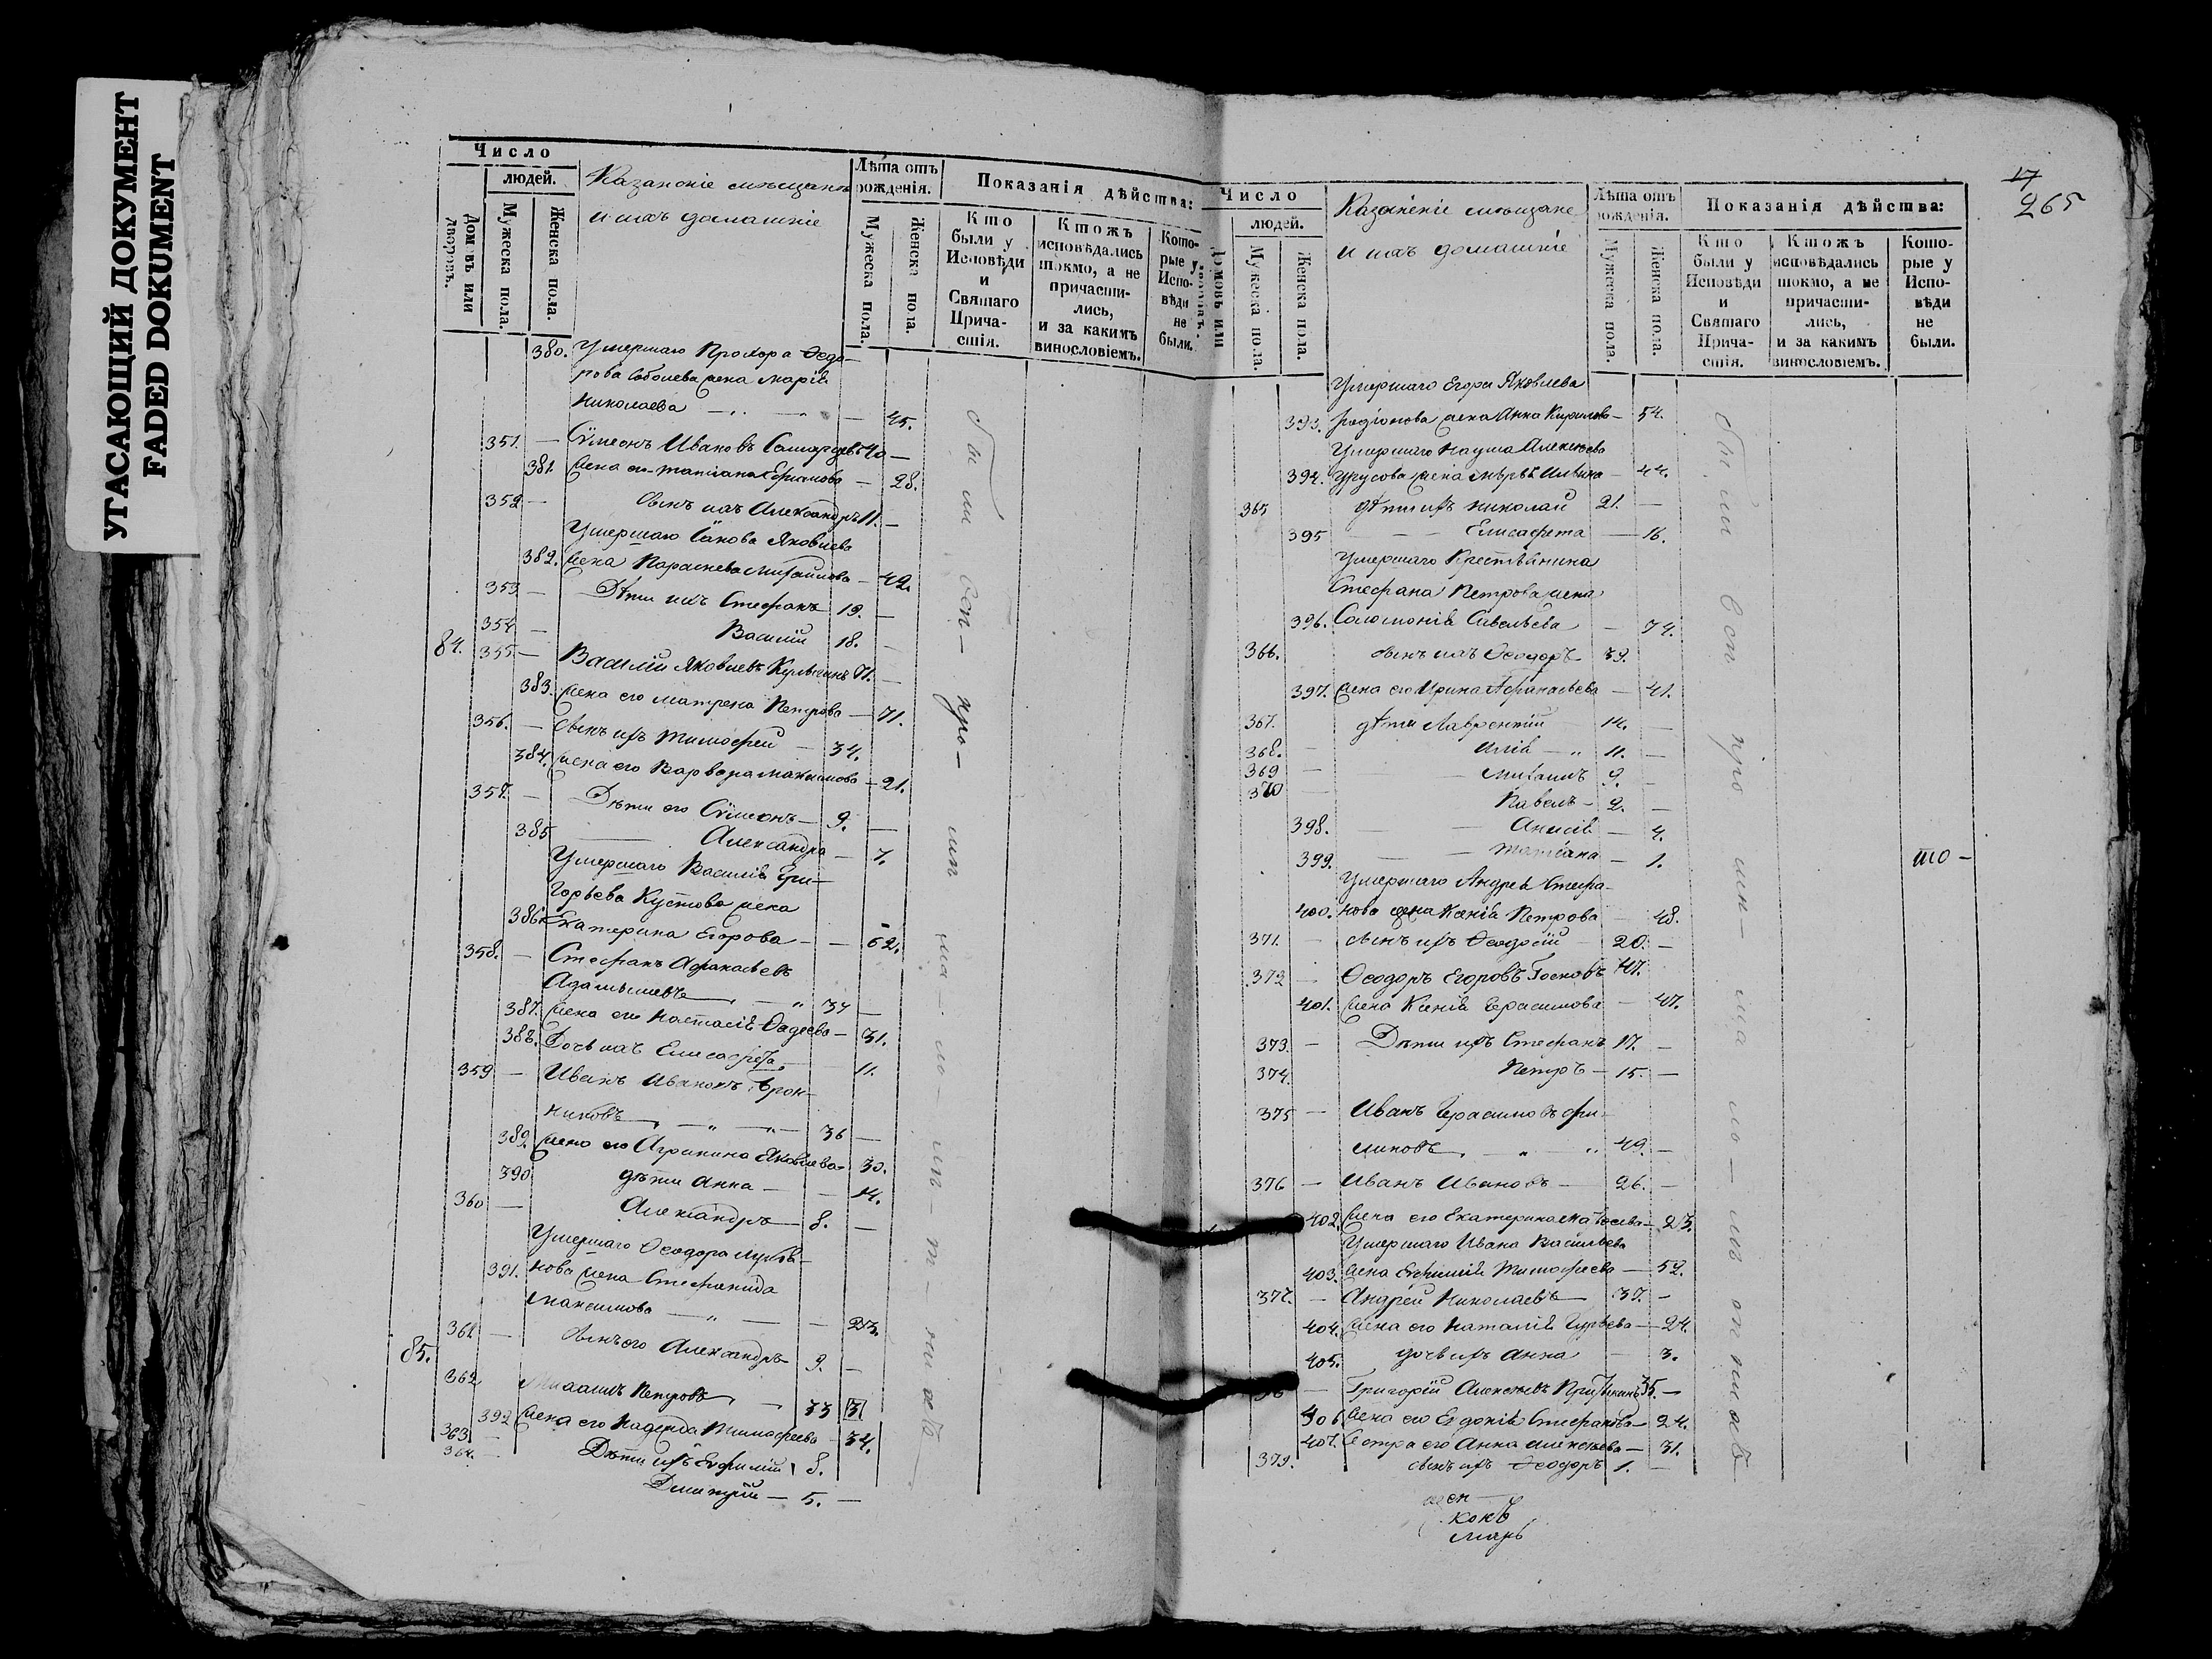 УГАСАЮЩИЙ ДОКУМЕНТ
FADED DOKUMENT
Число
людей.
Домовъ или дворовъ.
Мужеска пола.
Женска пола.
Казанскіе мѣщане
и ихъ домашніе
Лѣта отъ рожденія.
Мужеска пола.
Женска пола.
Показанія дѣйства:
Кто были у Исповѣди и Святаго Прича-стія.
Ктожъ исповѣдались токмо, а не причасти-лись, и за какимъ винословіемъ.
Кото-рые у Испо-вѣди не были.
380. Умершаго Прохора Ѳедо-
рова Соболева жена Марія
Николаева — 45.
351. — Сѵмеонъ Ивановъ 40 —
381. Жена его Татіана Ефимова — 28.
352 — Сынъ ихъ Александръ 11. —
Умершаго Іакова Яковлева
382. Жена Параскева Михайлова — 42.
353 — Дѣти ихъ Стефанъ 19. —
354 — Василій 18. —
84. 355 — Василій Яковлевъ 71. —
383. Жена его Матрена Петрова — 71.
356. — Сынъ ихъ Тимофей — 34.
384. Жена его Варвара Максимова — 21.
357. — Дѣти его Сѵмеонъ — 9. —
385 — Александра — 7.
Умершаго Василія Гри-
горьева Кустова жена
386. Екатерина Егорова — — 52.
358. — Стефанъ Афанасьевъ
— 37 —
387. Жена его Настасія Фадеева — 31.
388. Дочь ихъ Елисавета — 11.
359 — Иванъ Ивановъ
никовъ — 36 —
389. Жена его Агрипина Яковлева — 30.
390 дѣти Анна — — 14.
360 — Александръ — 8. —
Умершаго Ѳеодора
391. нова жена Стефанида
Максимова — — 23.
361 — Сынъ его Александръ 9. —
85.
362 Михаилъ Петровъ — 33
392 Жена его Надежда Тимофеева — 34.
363 — Дѣти ихъ Евфимій 8.
364. — Дмитрій — 5. —
17
265
Число
людей.
Домовъ или дворовъ.
Мужеска пола.
Женска пола.
Казанскіе мѣщане
и ихъ домашніе
Лѣта отъ рожденія.
Мужеска пола.
Женска пола.
Показанія дѣйства:
Кто были у Исповѣди и Святаго Прича-стія.
Ктожъ исповѣдались токмо, а не причасти-лись, и за какимъ винословіемъ.
Кото-рые у Испо-вѣди не были.
Умершаго Егора Яковлева
393. Родіонова жена Анна Кирилова — 54.
Умершаго Наума Алексѣева
394. Урусова жена Ильина — 44.
365 дѣти ихъ Николай 21. —
395 — — Елисавета — 16.
Умершаго Крестьянина
Стефана Петрова жена
396. Соломонія Савельева — 74.
366. сынъ ихъ Ѳеодоръ 39.
397. Жена его Ирина Афанасьева — 41.
367. дѣти Лаврентій 14. —
368. — Илія — 11. —
369 — Михаилъ 9. —
370 — Павелъ — 2. —
398. — — Анисія — 4.
399. — — Татіана — 1.
Умершаго Андрея Стефа-
400. нова жена Ксенія Петрова — 48.
371. — сынъ ихъ 20. —
372 — Ѳеодоръ Егоровъ 47.
401. Жена Ксенія Герасимова — 47.
373. — Дѣти ихъ Стефанъ 17. —
374. Петръ — 15. —
375 — Иванъ Герасимовъ Фи-
липовъ — 49. —
376 — Иванъ Ивановъ — 26. —
402. Жена его Екатерина — 23.
Умершаго Ивана Васильева
403. Жена Евфимія Тимофеева — 52.
377. — Андрей Николаевъ — 37. —
404. Жена его Наталія Гурьева — 24.
405. дочь ихъ Анна — 3.
— Григорій Алексѣевъ 35. —
406. Жена его Евдокія Стефанова — 24.
407. Сестра его Анна Алексѣева — 31.
379. сынъ ихъ Ѳеодоръ 1. —
то —